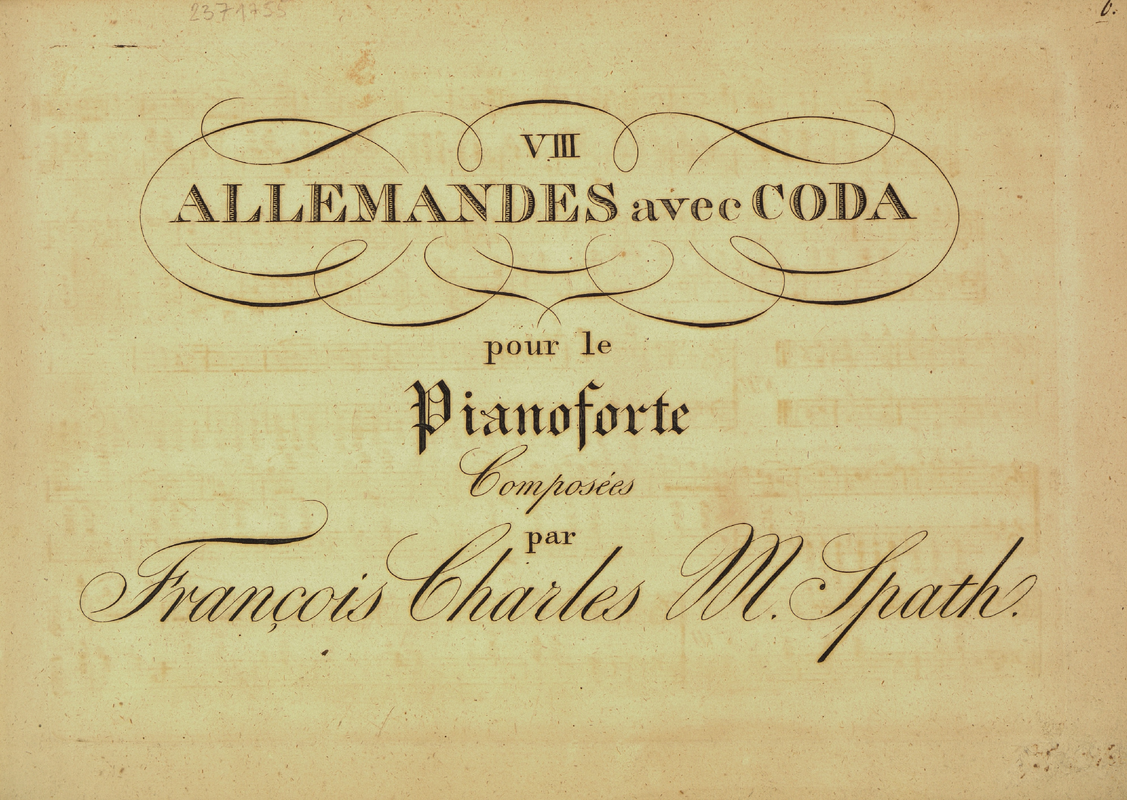 2371755
6.
VIII
ALLEMANDES avec CODA
pour le
Pianoforte
Composées
par
François Charles M. Spath.